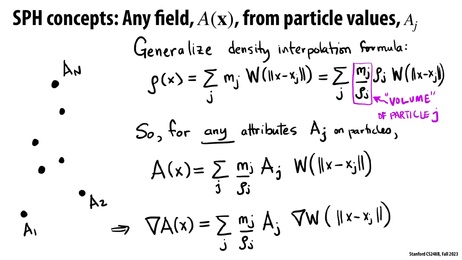 SPH concepts: Any field, A(x), from particle values, A_j
Generalize density interpolation formula:
ρ(x) = ∑_j m_j W(||x-x_j||) = ∑_j m_j/ρ_j ρ_j W(||x-x_j||)
"VOLUME"
OF PARTICLE j
So, for any attributes A_j on particles,
A(x) = ∑_j m_j/ρ_j A_j W(||x-x_j||)
⇒ ∇A(x) = ∑_j m_j/ρ_j A_j ∇W(||x-x_j||)
A_N
A_2
A_1
Stanford CS248B, Fall 2023